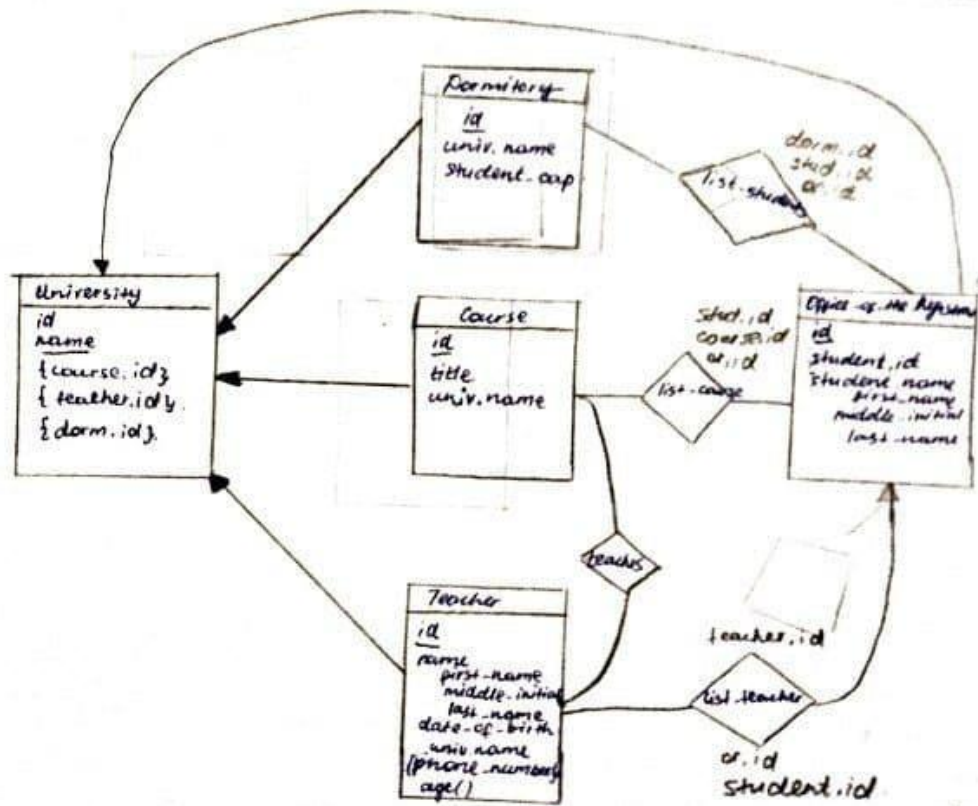 Dormitory
id
univ.name
student_cap
dorm.id
stud.id
or.id
list_students
University
id
name
{course.id}
{teacher.id}
{dorm.id}
Course
id
title
univ.name
stud.id
course.id
or.id
list_course
Office of the
id
student.id
student_name
first_name
middle_initial
last_name
teaches
Teacher
id
name
first_name
middle_initial
last_name
date_of_birth
univ.name
{phone_number}
age()
teacher.id
list_teacher
or.id
student.id